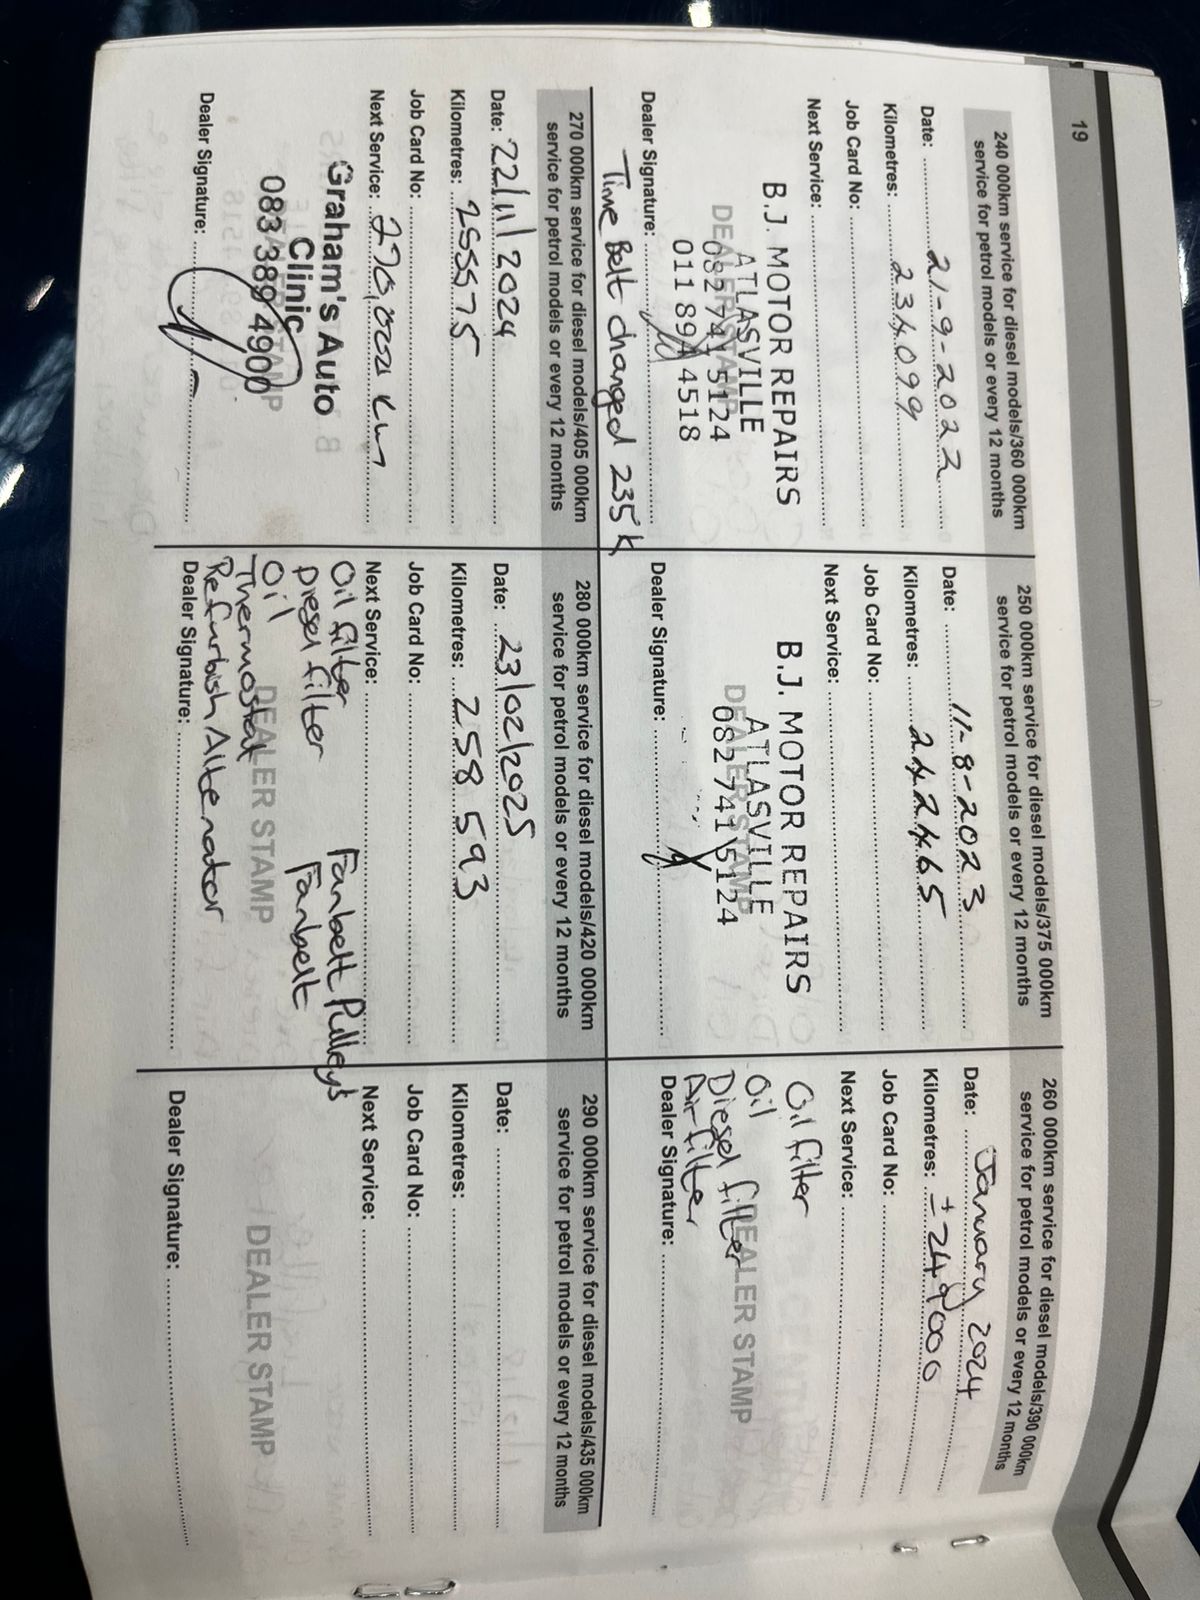 19
240 000km service for diesel models/360 000km
service for petrol models or every 12 months
Date: 21-9-2022
Kilometres: 234099
Job Card No:
Next Service:
B.J. MOTOR REPAIRS
ATLASVILLE
DEALER STAMP
082 741 5124
011 894 4518
Dealer Signature:
Time Belt changed 235k
250 000km service for diesel models/375 000km
service for petrol models or every 12 months
Date: 11-8-2023
Kilometres: 242465
Job Card No:
Next Service:
B.J. MOTOR REPAIRS
ATLASVILLE
DEALER STAMP
082 741 5124
Dealer Signature:
260 000km service for diesel models/390 000km
service for petrol models or every 12 months
Date: January 2024
Kilometres: ±249000
Job Card No:
Next Service:
Oil filter
Oil
DEALER STAMP
Diesel filter
Air filter
Dealer Signature:
270 000km service for diesel models/405 000km
service for petrol models or every 12 months
Date: 22/11/2024
Kilometres: 255575
Job Card No:
Next Service: 270,000 km
Graham's Auto
Clinic
DEALER STAMP
083 389 4900
Dealer Signature:
280 000km service for diesel models/420 000km
service for petrol models or every 12 months
Date: 23/02/2025
Kilometres: 258 593
Job Card No:
Next Service:
Oil filter Fanbelt Pulleys
Diesel filter Fanbelt
Oil
DEALER STAMP
Thermostat
Refurbish Altenator
Dealer Signature:
290 000km service for diesel models/435 000km
service for petrol models or every 12 months
Date:
Kilometres:
Job Card No:
Next Service:
DEALER STAMP
Dealer Signature: